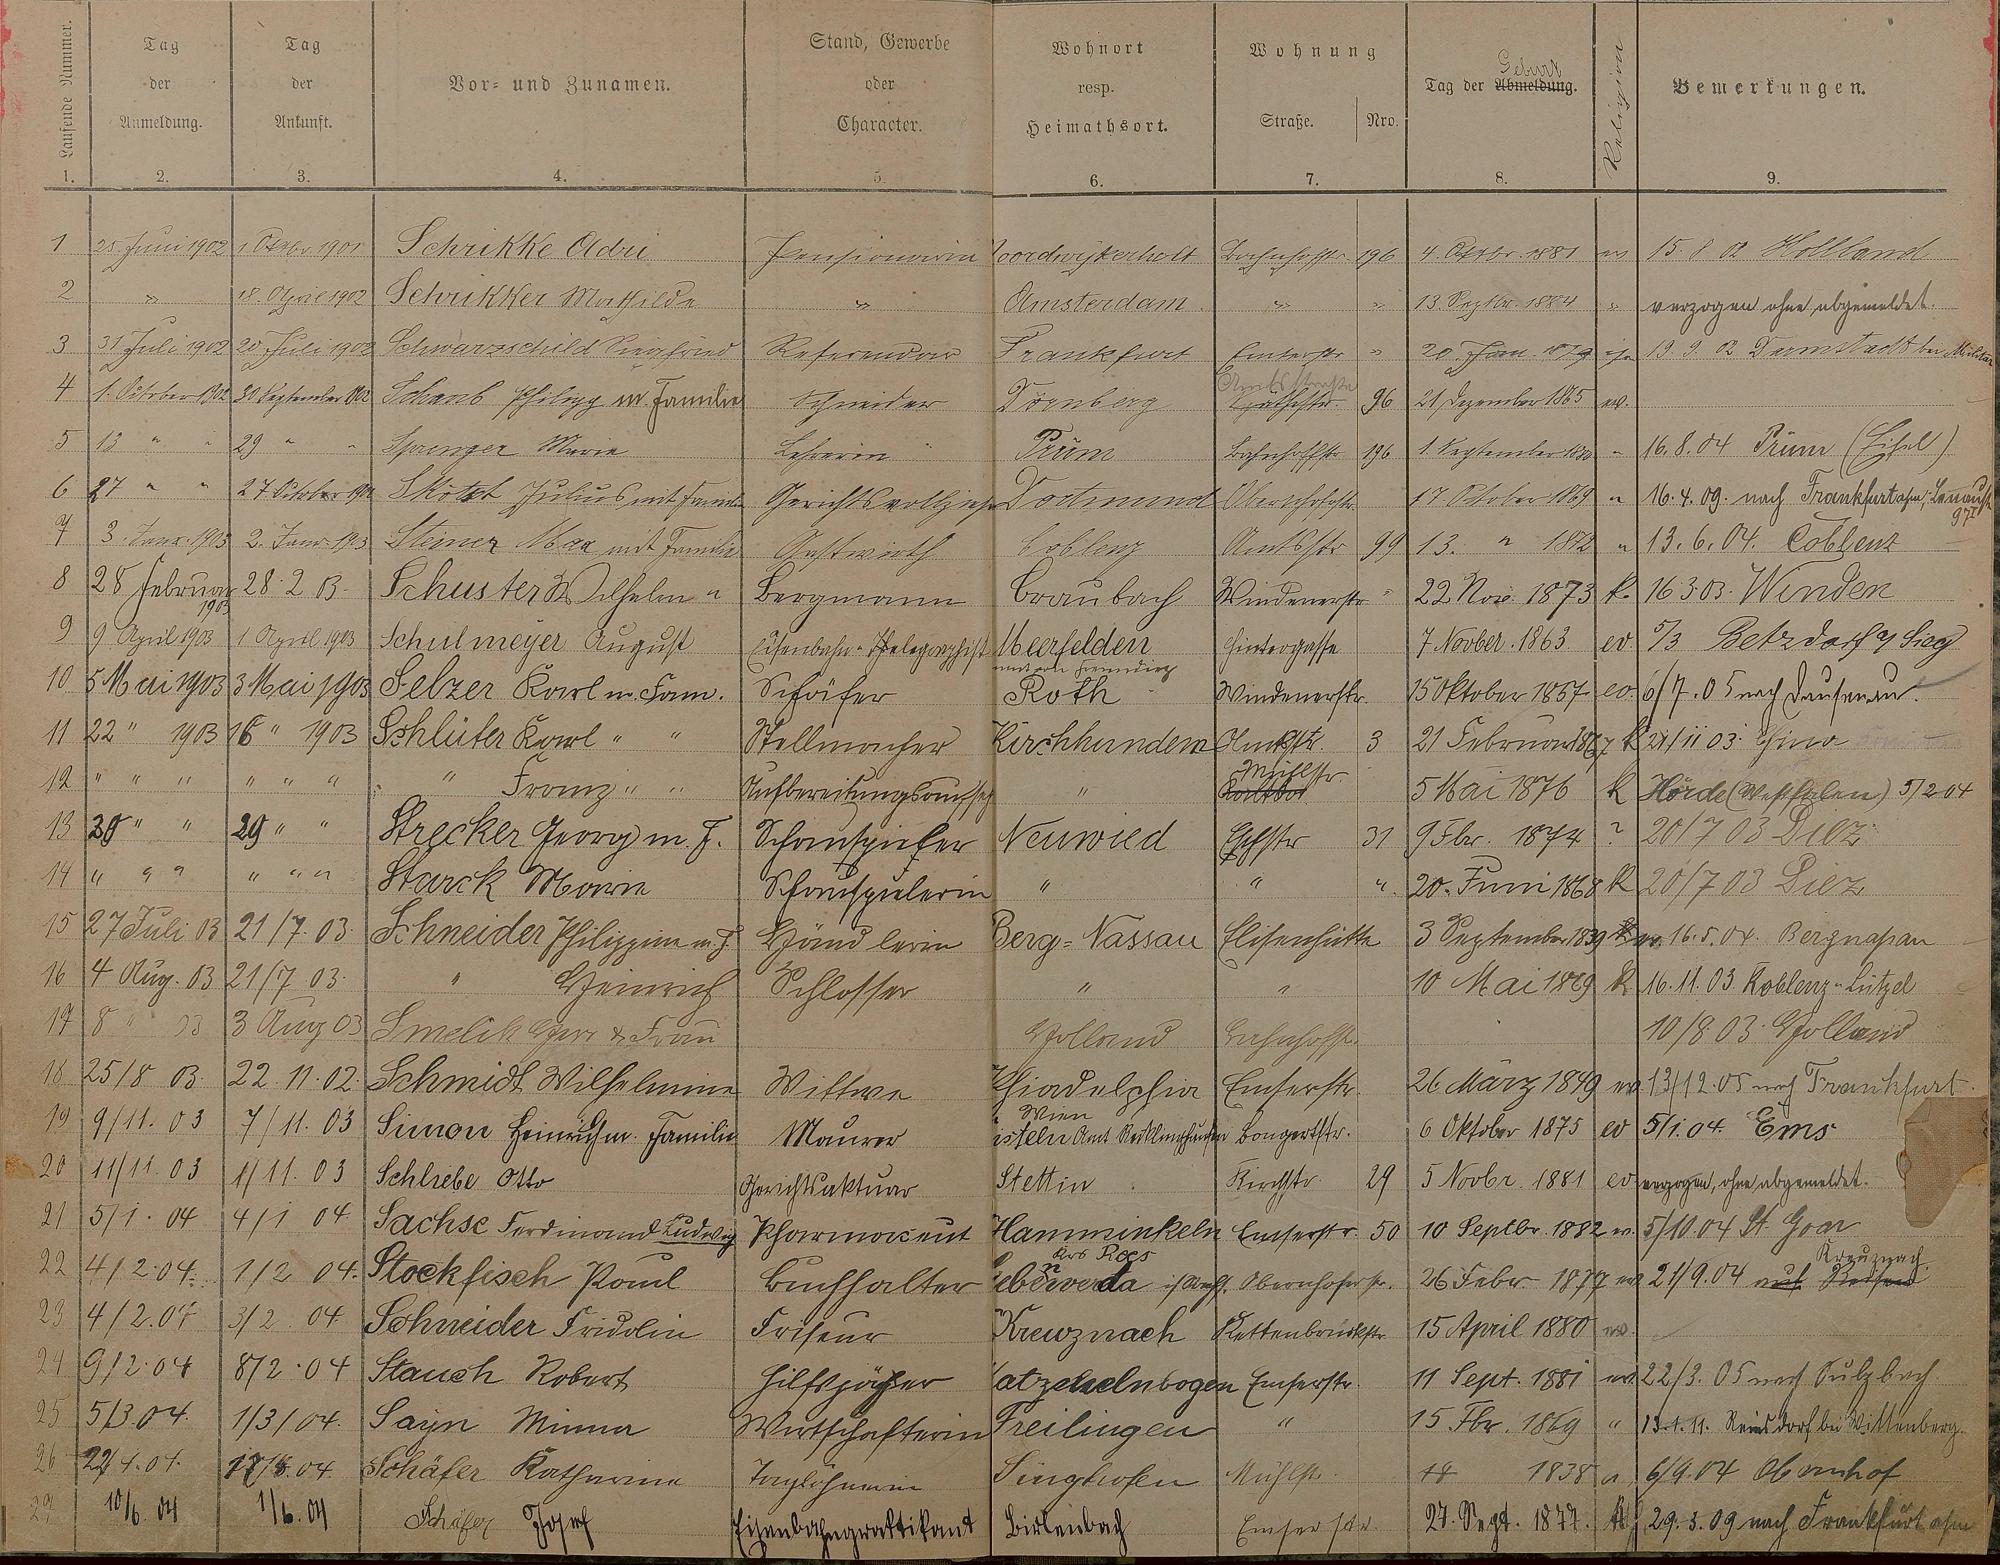 Laufende Nummer. Tag der Anmeldung. Tag der Ankunft. Vor- und Zunamen. Stand, Gewerbe oder Character. Wohnort resp. Heimathsort. Wohnung Straße. Nro. Tag der Abmeldung. Geburt Religion Bemerkungen.
1. 2. 3. 4. 5. 6. 7. 8. 9.
1 25. Juni 1902 1 Oktbr. 1901 Schrikke Adri Pensionärin Noordwijkerholt Bahnhofstr. 196 4. Oktbr. 1881 ev 15. 8 02 Holland
2 " 18. April 1902 Schrikker Mathilde " Amsterdam " " 13 Septbr. 1884 " verzogen ohne abgemeldet.
3 31 Juli 1902 20 Juli 1902 Schwarzschild Siegfried Referendar Frankfurt Emserstr " 20. Jan. 1879 isr 19 9 02 Darmstadt bei Militär
4 1. October 1902 30 September 1902 Schaub Philipp m. Familie Schneider Dörnberg Amtsstraße 96 21 Dezember 1865 ev.
5 13 " " 29 " " Sprenger Marie Lehrerin Prüm Bahnhofstr 196 1. September " 16. 8. 04 Prüm (Eifel)
6 27 " " 27 October 1902 Skotzt Julius mit Familie Gerichtsvollzieher Dortmund Obernhofstr. 17. October 1869 " 16. 4. 09. nach Frankfurt a/m, Lenaustr 97 I
7 3. Janr. 1903 2. Janr. 1903 Steiner Max mit Familie Gastwirth Coblenz Amtsstr 99 13. " 1872 " 13. 6. 04. Coblenz
8 28 Februar 1903 28. 2 03. Schuster Wilhelm " Bergmann Braubach Windenerstr " 22 Nov. 1873 k. 16 3. 03. Winden
9 9 April 1903 1 April 1903 Schulmeyer August Eisenbahn-Telegraphist Meerfelden Hintergasse 7 Novber. 1863 ev 5/3 Betzdorf a/ Sieg
10 5 Mai 1903 3 Mai 1903 Selzer Karl m. Fam. Schäfer Roth Windenerstr. 15 Oktober 1857 ev. 6/7. 05 nach Dausenau.
11 22 " 1903 16 " 1903 Schlüter Karl " " Stellmacher Kirchhundem Amtsstr. 3 21 Februar 1867 k 21/11 03. China
12 " " " " " " " Franz " " Aufbereitungsaufseh " Mühlstr 5 Mai 1876 k Hörde (Westfalen) 5/2 04
13 30 " " 29 " " Strecker Georg m. F. Schauspieler Neuwied Eschstr 31 9 Fbr. 1874 ? 20/7 03 Diez
14 " " " " " " Starck Marie Schauspielerin " " " 20. Juni 1868 k 20/7 03 Diez
15 27 Juli 03 21/7. 03. Schneider Philippine m. F. Händlerin Berg-Nassau Elisenhütte 3 September 1839 ev. 16. 5. 04. Bergnassau
16 4 Aug. 03 21/7 03. " Heinrich Schlosser " " 10 Mai 1869 k 16. 11. 03. Koblenz-Lützel
17 8 " 03 3 Aug 03 Smelik Herr & Frau Holland Bahnhofstr. 10/8 03. Holland
18 25/8 03. 22. 11. 02. Schmidt Wilhelmine Wittwe Emserstr. 26 März 1849 ev 13/12. 05 nach Frankfurt.
19 9/11. 03 7/11. 03 Simon Heinrich m. Familie Maurer Amt Recklinghausen Bongertstr. 6 Oktober 1875 ev 5/1. 04. Ems
20 11/11. 03 1/11. 03 Schliebe Otto Gerichtsaktuar Stettin Kirchstr. 29 5 Novbr. 1881 ev verzogen, ohne abgemeldet.
21 5/1. 04 4/1 04 Sachse Ferdinand Ludwig Pharmaceut Hamminkeln Krs Rees Emserstr. 50 10 Septbr. 1882 ev. 5/10. 04 St. Goar
22 4/2. 04. 1/2 04. Stockfisch Paul Buchhalter Obernhoferstr. 26 Febr. 1877 ev 21/9. 04 auf Reisen Kreuznach.
23 4/2. 04 3/2. 04 Schneider Fridolin Friseur Kreuznach Kettenbrückstr. 15 April 1880 ev.
24 9/2. 04 8/2. 04 Stauch Robert Hilfsjäger Katzenelnbogen Emserstr. 11 Sept. 1881 ev. 22/3. 05 nach Sulzbach.
25 5/3 04. 1/3/04. Sayn Minna Wirtschafterin Freilingen " 15 Fbr. 1869 " 13. 1. 11. Reinsdorf bei Wittenberg.
26 22/4. 04. 04. Schäfer Katharine Taglöhnerin Singhofen Mühlstr. 18 1838 " 6/9. 04 Obernhof
27 10/6. 04 1/6. 04 Schäfer Josef Eisenbahnpraktikant Birlenbach Emserstr. 27. Sept. 1877. 29. 3. 09 nach Frankfurt a/m